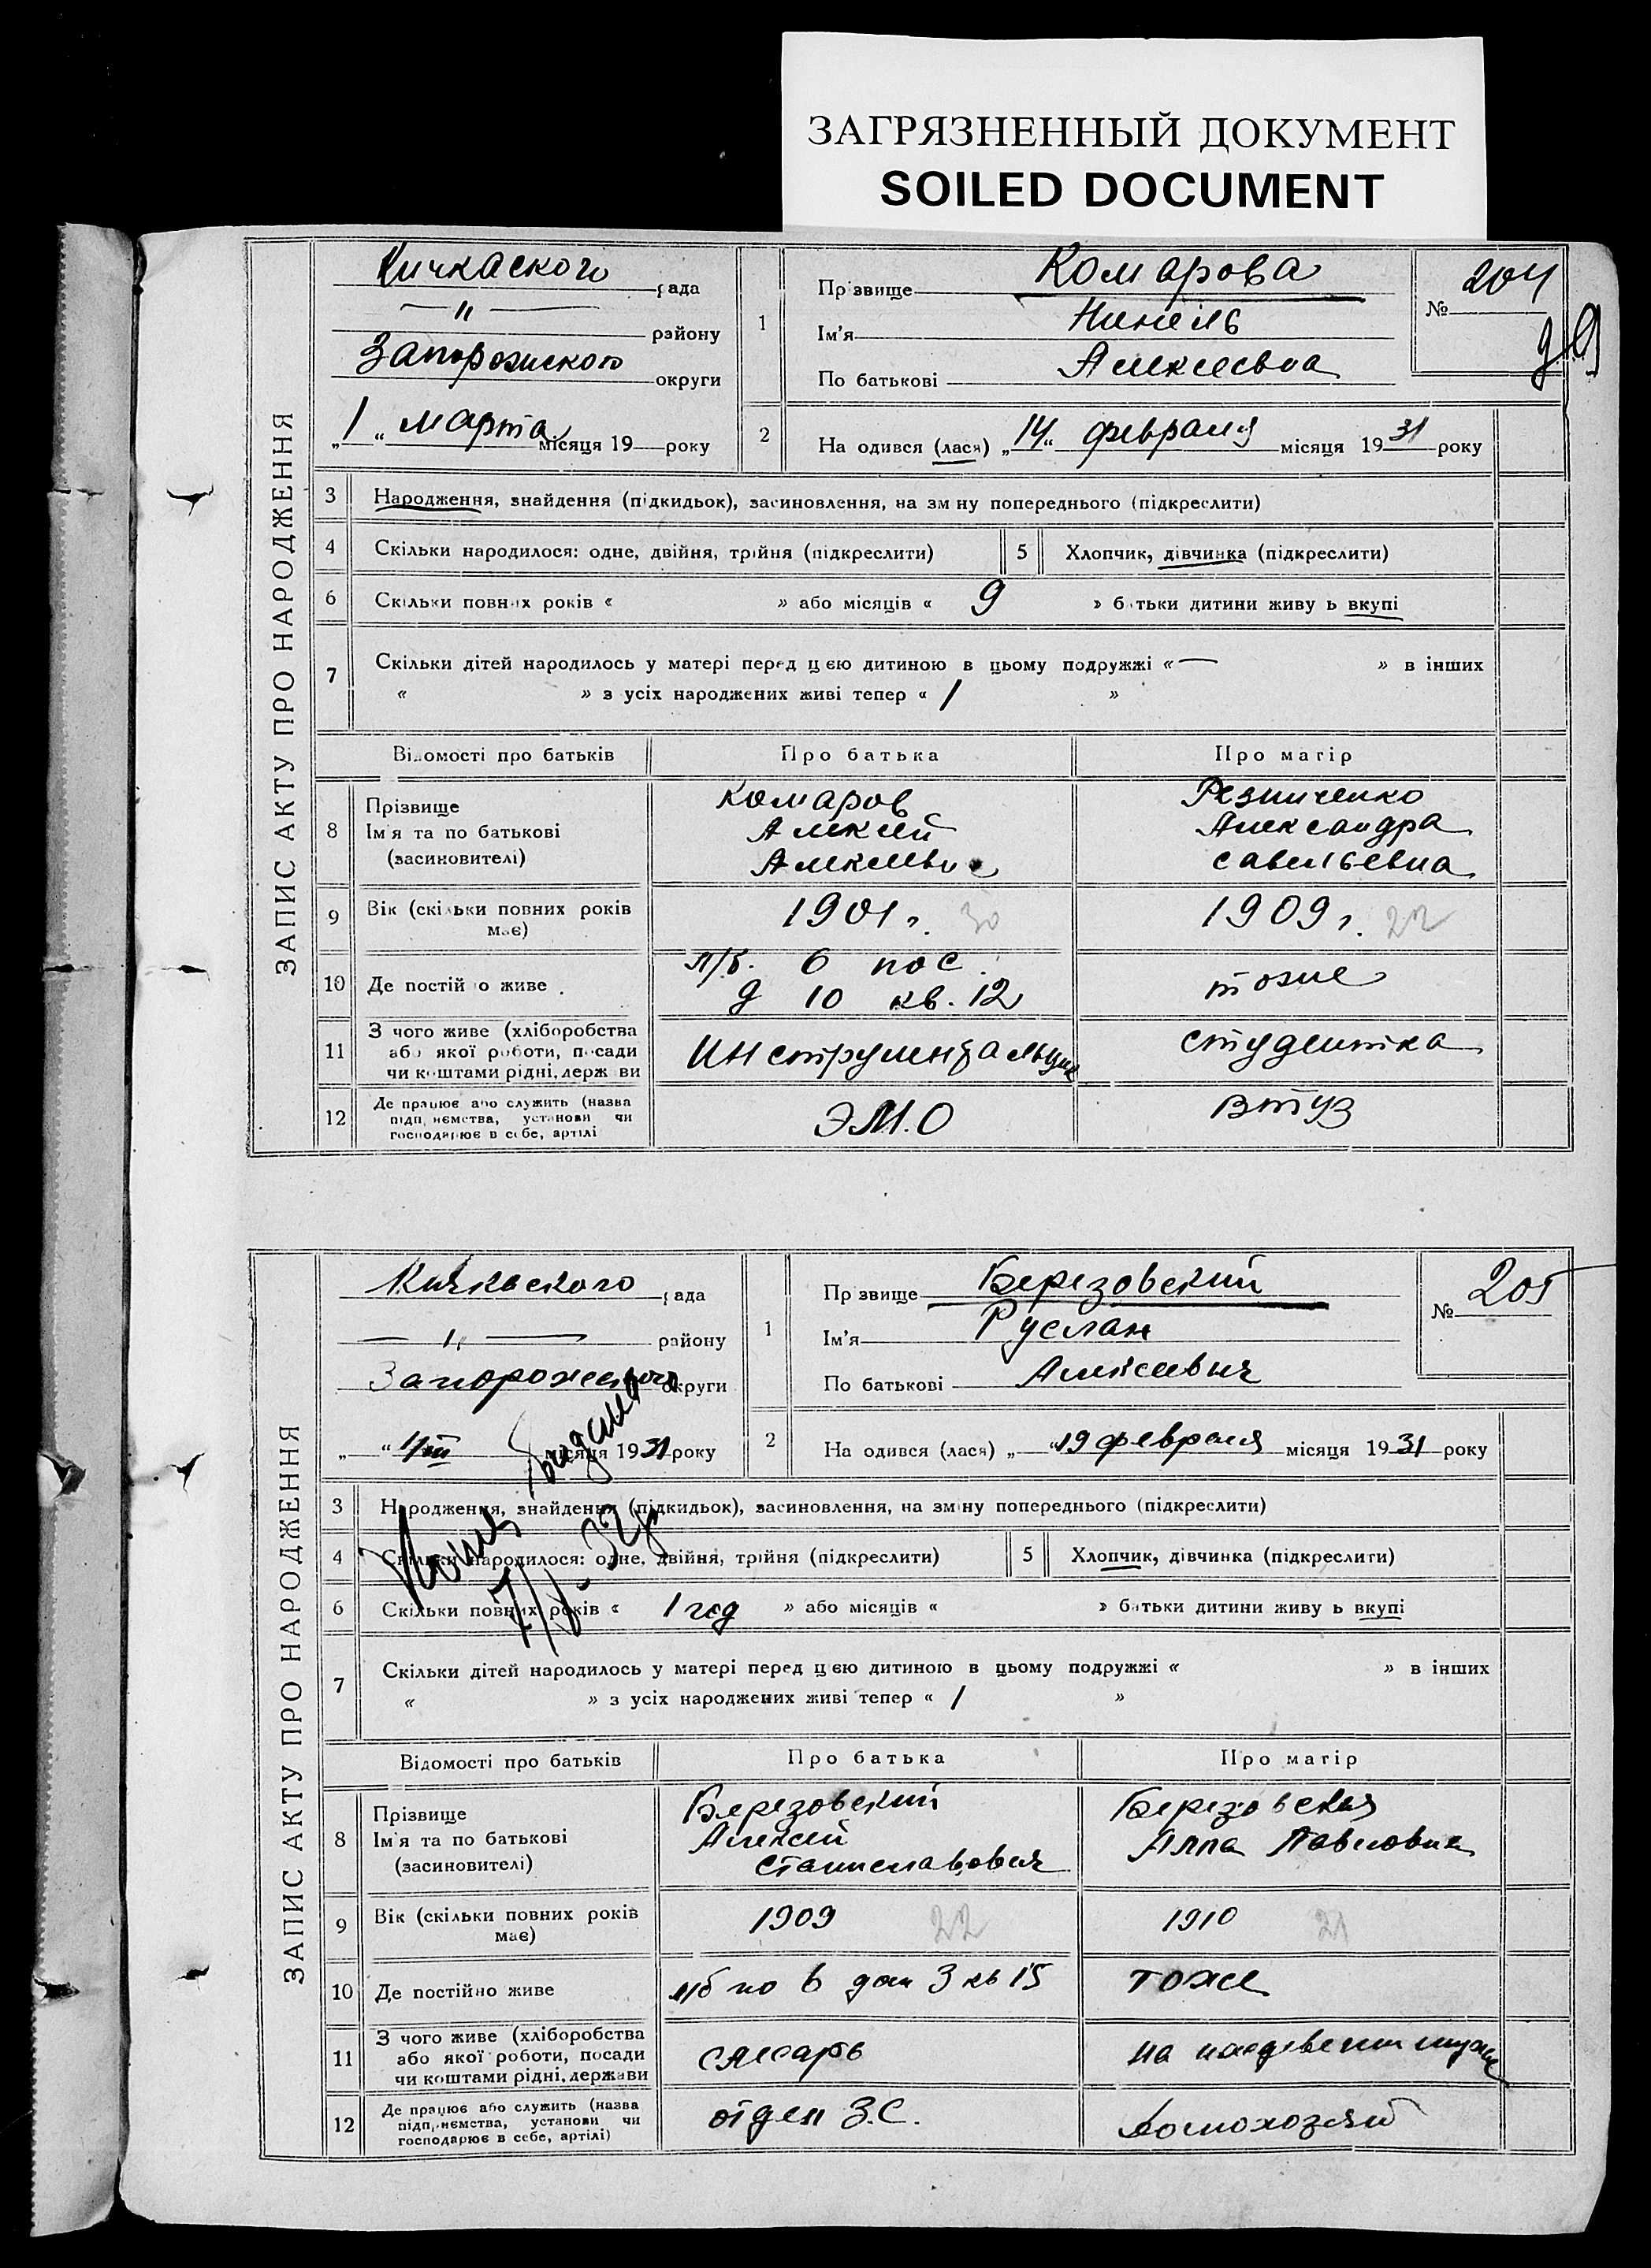 ЗАГРЯЗНЕННЫЙ ДОКУМЕНТ
SOILED DOCUMENT
ЗАПИС АКТУ ПРО НАРОДЖЕННЯ
Кичкаского рада
— " — району
Запорожского округи
„1“ марта місяця 19 року
1
Прізвище Комарова
Ім'я Нинель
По батькові Алексеевна
№ 204
2
Народився (лася) „14“ февраля місяця 1931 року
3 Народження, знайдення (підкидьок), засиновлення, на зміну попереднього (підкреслити)
4 Скільки народилося: одне, двійня, трійня (підкреслити) 5 Хлопчик, дівчинка (підкреслити)
6 Скільки повних років « » або місяців « 9 » батьки дитини живуть вкупі
7 Скільки дітей народилось у матері перед цією дитиною в цьому подружжі «— » в інших
« » з усіх народжених живі тепер « 1 »
Відомості про батьків Про батька Про матір
8 Прізвище Ім'я та по батькові (засиновителі)
Комаров Алексей Алексеевич
Резниченко Александра Савельевна
9 Вік (скільки повних років має) 1901 г. 30 1909 г. 22
10 Де постійно живе л/б. 6 пос. д 10 кв. 12 тоже
11 З чого живе (хліборобства або якої роботи, посади чи коштами рідні, держави Инструментальщик студентка
12 Де працює або служить (назва підприємства, установи чи господарює в себе, артілі ЭМ.О Втуз
ЗАПИС АКТУ ПРО НАРОДЖЕННЯ
Кичкаского рада
— " — району
Запорожского округи
„ “ 1/III місяця 1931 року
1
Прізвище Березовский
Ім'я Руслан
По батькові Алексеевич
№ 205
2
Народився (лася) „ “19 февраля місяця 1931 року
3 Народження, знайдення (підкидьок), засиновлення, на зміну попереднього (підкреслити)
4 Скільки народилося: одне, двійня, трійня (підкреслити) 5 Хлопчик, дівчинка (підкреслити)
6 Скільки повних років « 1 год » або місяців « » батьки дитини живуть вкупі
7 Скільки дітей народилось у матері перед цією дитиною в цьому подружжі « » в інших
« » з усіх народжених живі тепер « 1 »
Відомості про батьків Про батька Про матір
8 Прізвище Ім'я та по батькові (засиновителі)
Березовский Алексей Станиславович
Березовская Анна Павловна
9 Вік (скільки повних років має) 1909 22 1910 21
10 Де постійно живе л/б по 6 дом 3 кв 15 тоже
11 З чого живе (хліборобства або якої роботи, посади чи коштами рідні, держави слесарь на иждевении мужа
12 Де працює або служить (назва підприємства, установи чи господарює в себе, артілі) отдел З.С. домохозяй